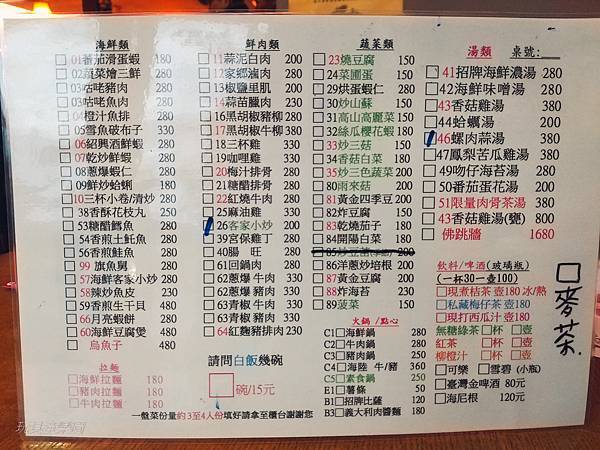 海鮮類
□01蕃茄滑蛋蝦 180
□02蔬菜燴三鮮 280
□03咕咾豬肉 280
□03咕咾魚肉 280
□04橙汁魚排 280
□05雪魚破布子 330
□06紹興酒鮮蝦 580
□07乾炒鮮蝦 580
□08蔥爆蝦仁 280
□09鮮炒蛤蜊 180
□10三杯小卷/清炒 280
□38香酥花枝丸 250
□53糖醋鱈魚 280
□54香煎土魠魚 280
□56香煎鮭魚 280
□99 旗魚舅 280
□57海鮮客家小炒 280
□58辣炒魚皮 230
□59香煎生干貝 480
□66月亮蝦餅 280
□60海鮮豆腐煲 480
□ 烏魚子 480
拉麵
□海鮮拉麵 180
□豬肉拉麵 180
□牛肉拉麵 180
鮮肉類
□11蒜泥白肉 200
□12家鄉滷肉 280
□13椒鹽里肌 200
□14蒜苗臘肉 280
□16黑胡椒豬柳 280
□17黑胡椒牛柳 380
□18三杯雞 330
□19咖哩雞 330
□20梅汁排骨 280
□21糖醋排骨 280
□22紅燒牛肉 280
□25麻油雞 330
□26客家小炒 200
□39宮保雞丁 280
□40腸 旺 280
□61回鍋肉 280
□62蔥爆 牛肉 330
□62蔥爆 豬肉 280
□63青椒 牛肉 330
□63青椒 豬肉 280
□64紅麴豬排肉 230
請問白飯幾碗
□碗/15元
一盤菜份量約3至4人份填好請拿至櫃台謝謝您
蔬菜類
□23燒豆腐 150
□24菜圃蛋 150
□29烘蛋蝦仁 280
□30炒山蘇 150
□31高山高麗菜 150
□32絲瓜櫻花蝦 180
□33炒三菇 150
□34香菇白菜 180
□35炒三色蔬菜 180
□80雨來菇 180
□81黃金四季豆 200
□82炸豆腐 150
□83乾燒茄子 180
□84開陽白菜 180
□86洋蔥炒培根 200
□87黃金豆腐 200
□88炸海苔 230
□89菠菜 150
火鍋/點心
C1□海鮮鍋 280
C2□牛肉鍋 280
C3□豬肉鍋 280
C4□海陸 牛/豬 360
C5□素食鍋 250
E1□薯條 50
B1□招牌比薩 120
B3□義大利肉醬麵 180
湯類 桌號:
□41招牌海鮮濃湯 280
□42海鮮味噌湯 280
□43香菇雞湯 380
□44蛤蠣湯 200
□46螺肉蒜湯 380
□47鳳梨苦瓜雞湯 380
□49吻仔海苔湯 200
□50蕃茄蛋花湯 200
□51限量肉骨茶湯 380
□43香菇雞湯(甕) 800
□ 佛跳牆 1680
飲料/啤酒(玻璃瓶)
(一杯30一壺100)
□現煮桔茶 壺180 冰/熱
□私藏梅仔茶 壺180
□現打西瓜汁 壺180
無糖綠茶□杯 □壺
紅茶 □杯 □壺
柳橙汁 □杯 □壺
□可樂 □雪碧 (小瓶)
□臺灣金啤酒 80元
□海尼根 120元
□麥茶